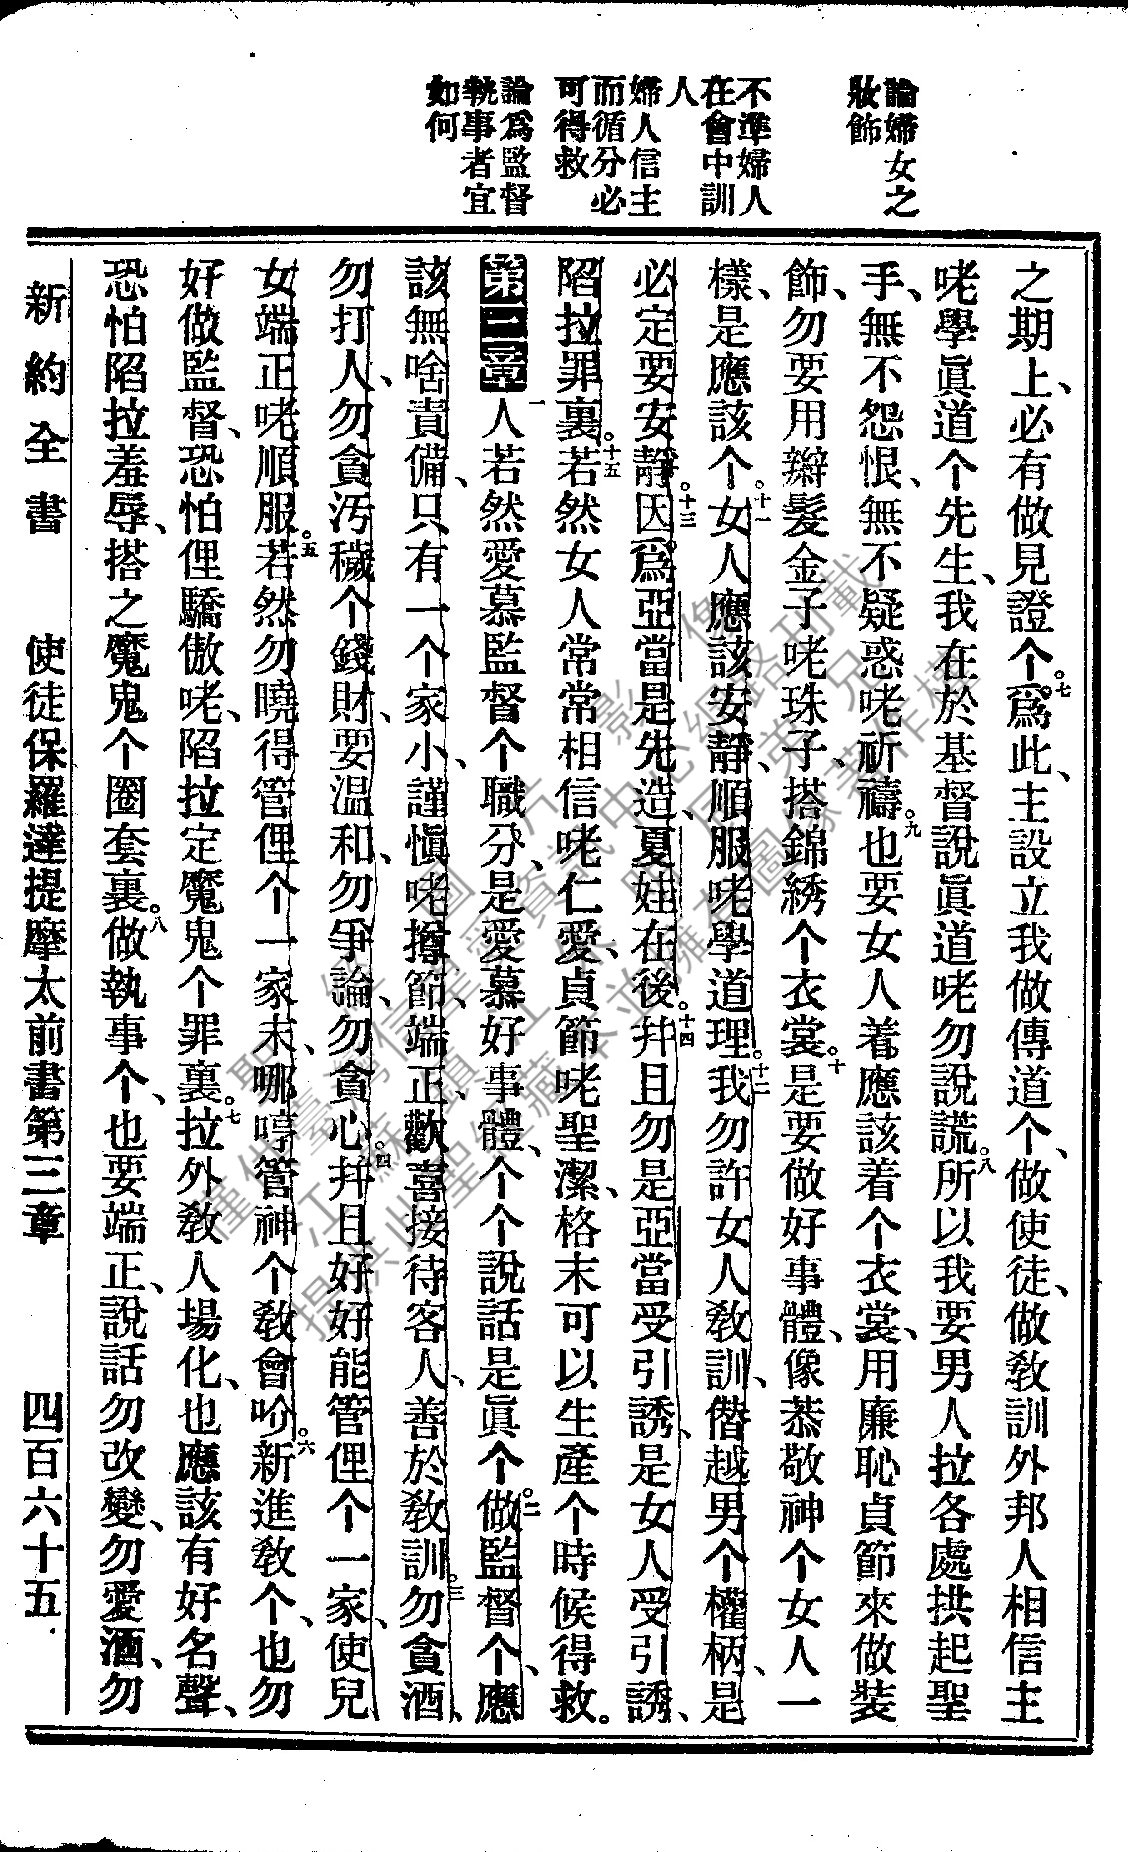 論婦女之
妝飾
不準婦人
在會中訓
人
婦人信主
而循分必
可得救
論爲監督
執事者宜
如何
之期上、必有做見證个。七爲此、主設立我做傳道个、做使徒、做敎訓外邦人相信主
咾學眞道个先生、我在於基督說眞道咾勿說謊。八所以我要男人拉各處拱起聖
手、無不怨恨、無不疑惑咾祈禱。九也要女人着應該着个衣裳、用廉恥貞節來做裝
飾、勿要用辮髮金子咾珠子、搭錦綉个衣裳。十是要做好事體、像恭敬神个女人一
樣、是應該个。十一女人應該安靜、順服咾學道理。十二我勿許女人敎訓、僭越男个權柄、是
必定要安靜。十三因爲亞當是先造、夏娃在後。十四幷且勿是亞當受引誘、是女人受引誘、
陷拉罪裏。十五若然女人常常相信咾仁愛、貞節咾聖潔、格末可以生產个時候得救。
第三章 一人若然愛慕監督个職分、是愛慕好事體、个个說話是眞个。二做監督个、應
該無啥責備、只有一个家小、謹愼咾撙節、端正、歡喜接待客人、善於敎訓。三勿貪酒、
勿打人、勿貪汚穢个錢財、要温和、勿爭論、勿貪心。四幷且好好能管俚个一家、使兒
女端正咾順服。五若然勿曉得管俚个一家末、哪哼管神个敎會吤。六新進敎个、也勿
好做監督、恐怕俚驕傲咾、陷拉定魔鬼个罪裏。七拉外敎人場化、也應該有好名聲、
恐怕陷拉羞辱、搭之魔鬼个圈套裏。八做執事个、也要端正、說話勿改變、勿愛酒、勿
新約全書　使徒保羅達提摩太前書第三章　四百六十五
聖經圖片影像
僅供臺灣信望愛資訊中心網路刊載
提供此聖經藏本並擁有圖像著作權